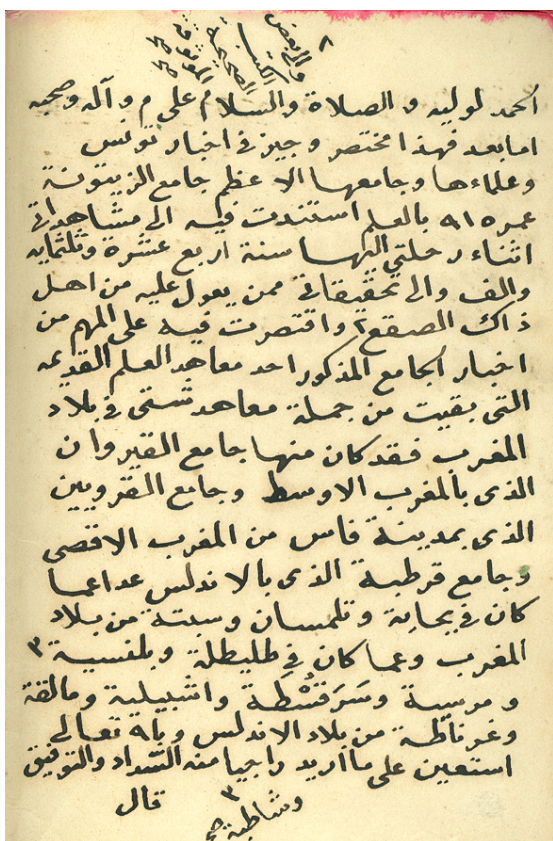 والى بعض
الكتب
الصحيحة
الموثوق
بها صح
الحمد لوليه والصلاة والسلام على م وآله وصحبه
اما بعد فهذا مختصر وجيز في اخبار تونس
وعلماءها وجامعها الاعظم جامع الزيتونة
عمره ا۹ بالعلم استندت فيه الى مشاهداتي
اثناء رحلتي اليها سنة اربع عشرة وثلثمايه
والف والى تحقيقاتي ممن يعول عليه من اهل
ذاك الصقع ٢ واقتصرت فيه على المهم من
اخبار الجامع المذكور احد معاهد العلم القديمه
التى بقيت من جملة معاهد شتى في بلاد
المغرب فقد كان منها جامع القيروان
الذى بالمغرب الاوسط وجامع القرويين
الذى بمدينة فاس من المغرب الاقصى
وجامع قرطبة الذى بالاندلس عدا عما
كان في بجاية وتلمسان وسبتة من بلاد
المغرب وعما كان في طليطلة وبلنسية ٣
ومرسية وسَرَقُسْطَة واشبيلية ومالقة
وغرناطة من بلاد الاندلس وبا۹ تعالى
استعين على ما اريد راجيا منه السداد والتوفيق
قال
٣ وشاطبة صح